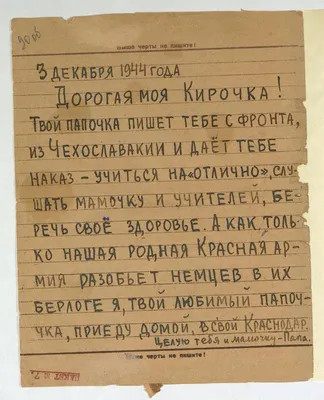 Выше черты не пишите!
3 ДЕКАБРЯ 1944 ГОДА
ДОРОГАЯ МОЯ КИРОЧКА!
ТВОЙ ПАПОЧКА ПИШЕТ ТЕБЕ С ФРОНТА,
ИЗ ЧЕХОСЛАВАКИИ И ДАЁТ ТЕБЕ
НАКАЗ – УЧИТЬСЯ НА «ОТЛИЧНО», СЛУ-
ШАТЬ МАМОЧКУ И УЧИТЕЛЕЙ, БЕ-
РЕЧЬ СВОЁ ЗДОРОВЬЕ. А КАК ТОЛЬ-
КО НАШАЯ РОДНАЯ КРАСНАЯ АР-
МИЯ РАЗОБЬЕТ НЕМЦЕВ В ИХ
БЕРЛОГЕ Я, ТВОЙ ЛЮБИМЫЙ ПАПО-
ЧКА, ПРИЕДУ ДОМОЙ, В СВОЙ КРАСНОДАР.
ЦЕЛУЮ ТЕБЯ И МАМОЧКУ – ПАПА.
Ниже черты не пишите!